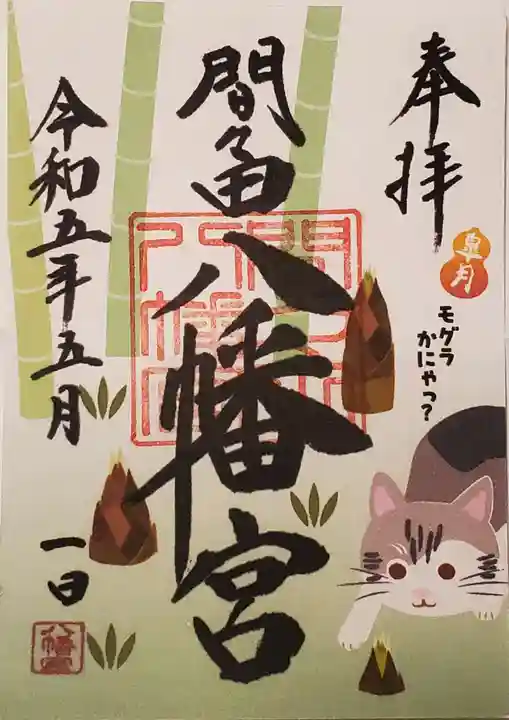 奉拝
皐月
モグラ
かにゃっ?
間黒八幡宮
令和五年五月
一日
八幡宮